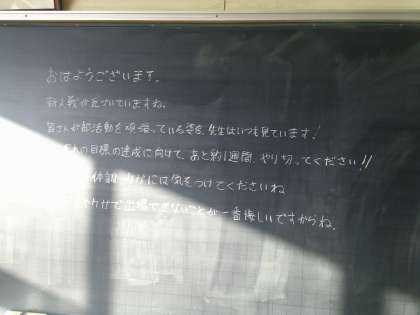 おはようございます。
新人戦が近づいていますね。
皆さんが部活動を頑張っている姿を、先生はいつも見ています!
の目標の達成に向けて、あと約1週間、やり切ってください!!
体調 には気をつけてくださいね
で出場できないことが一番悔しいですからね。